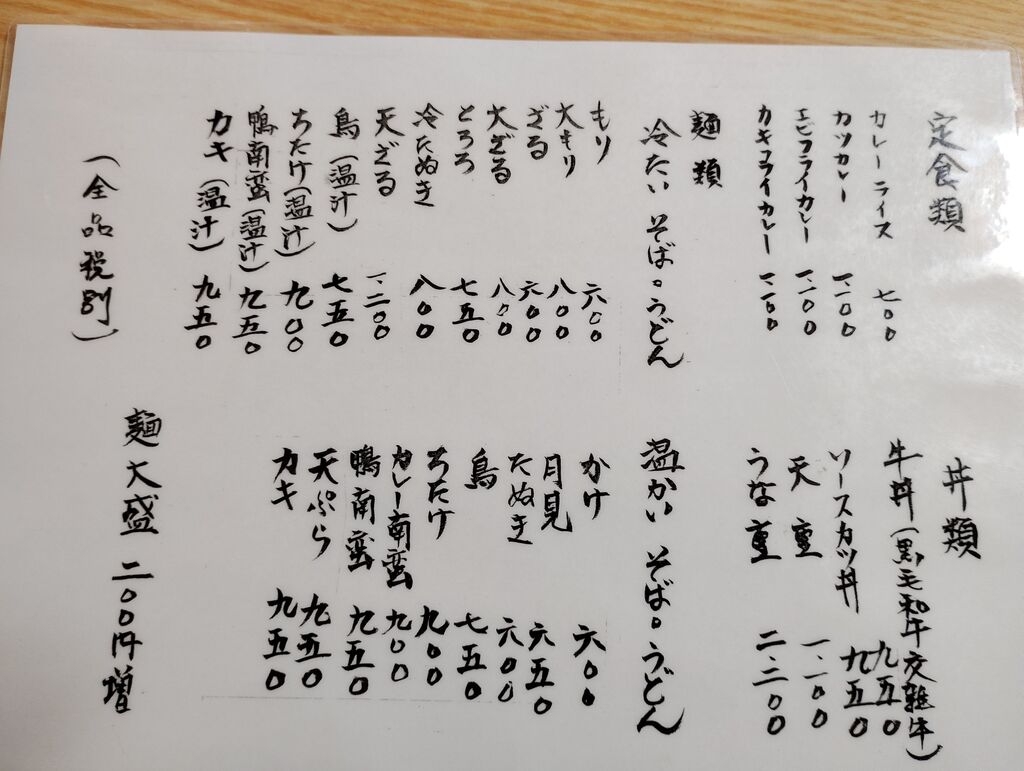 定食類
カレーライス 七〇〇
カツカレー 一、一〇〇
エビフライカレー 一、一〇〇
カキフライカレー 一、一〇〇
麺類
冷たい そば。うどん
もり 六〇〇
大もり 八〇〇
ざる 六〇〇
大ざる 八〇〇
とろろ 七五〇
冷たぬき 八〇〇
天ざる 一、二〇〇
鳥(温汁) 七五〇
ちたけ(温汁) 九〇〇
鴨南蛮(温汁) 九五〇
カキ(温汁) 九五〇
(全品税別)
丼類
牛丼(黒毛和牛交雑牛) 九五〇
ソースカツ丼 九五〇
天重 一、一〇〇
うな重 二、二〇〇
温かい そば。うどん
かけ 六〇〇
月見 六五〇
たぬき 六〇〇
鳥 七五〇
ちたけ 九〇〇
カレー南蛮 九〇〇
鴨南蛮 九五〇
天ぷら 九五〇
カキ 九五〇
麺大盛 二〇〇円増